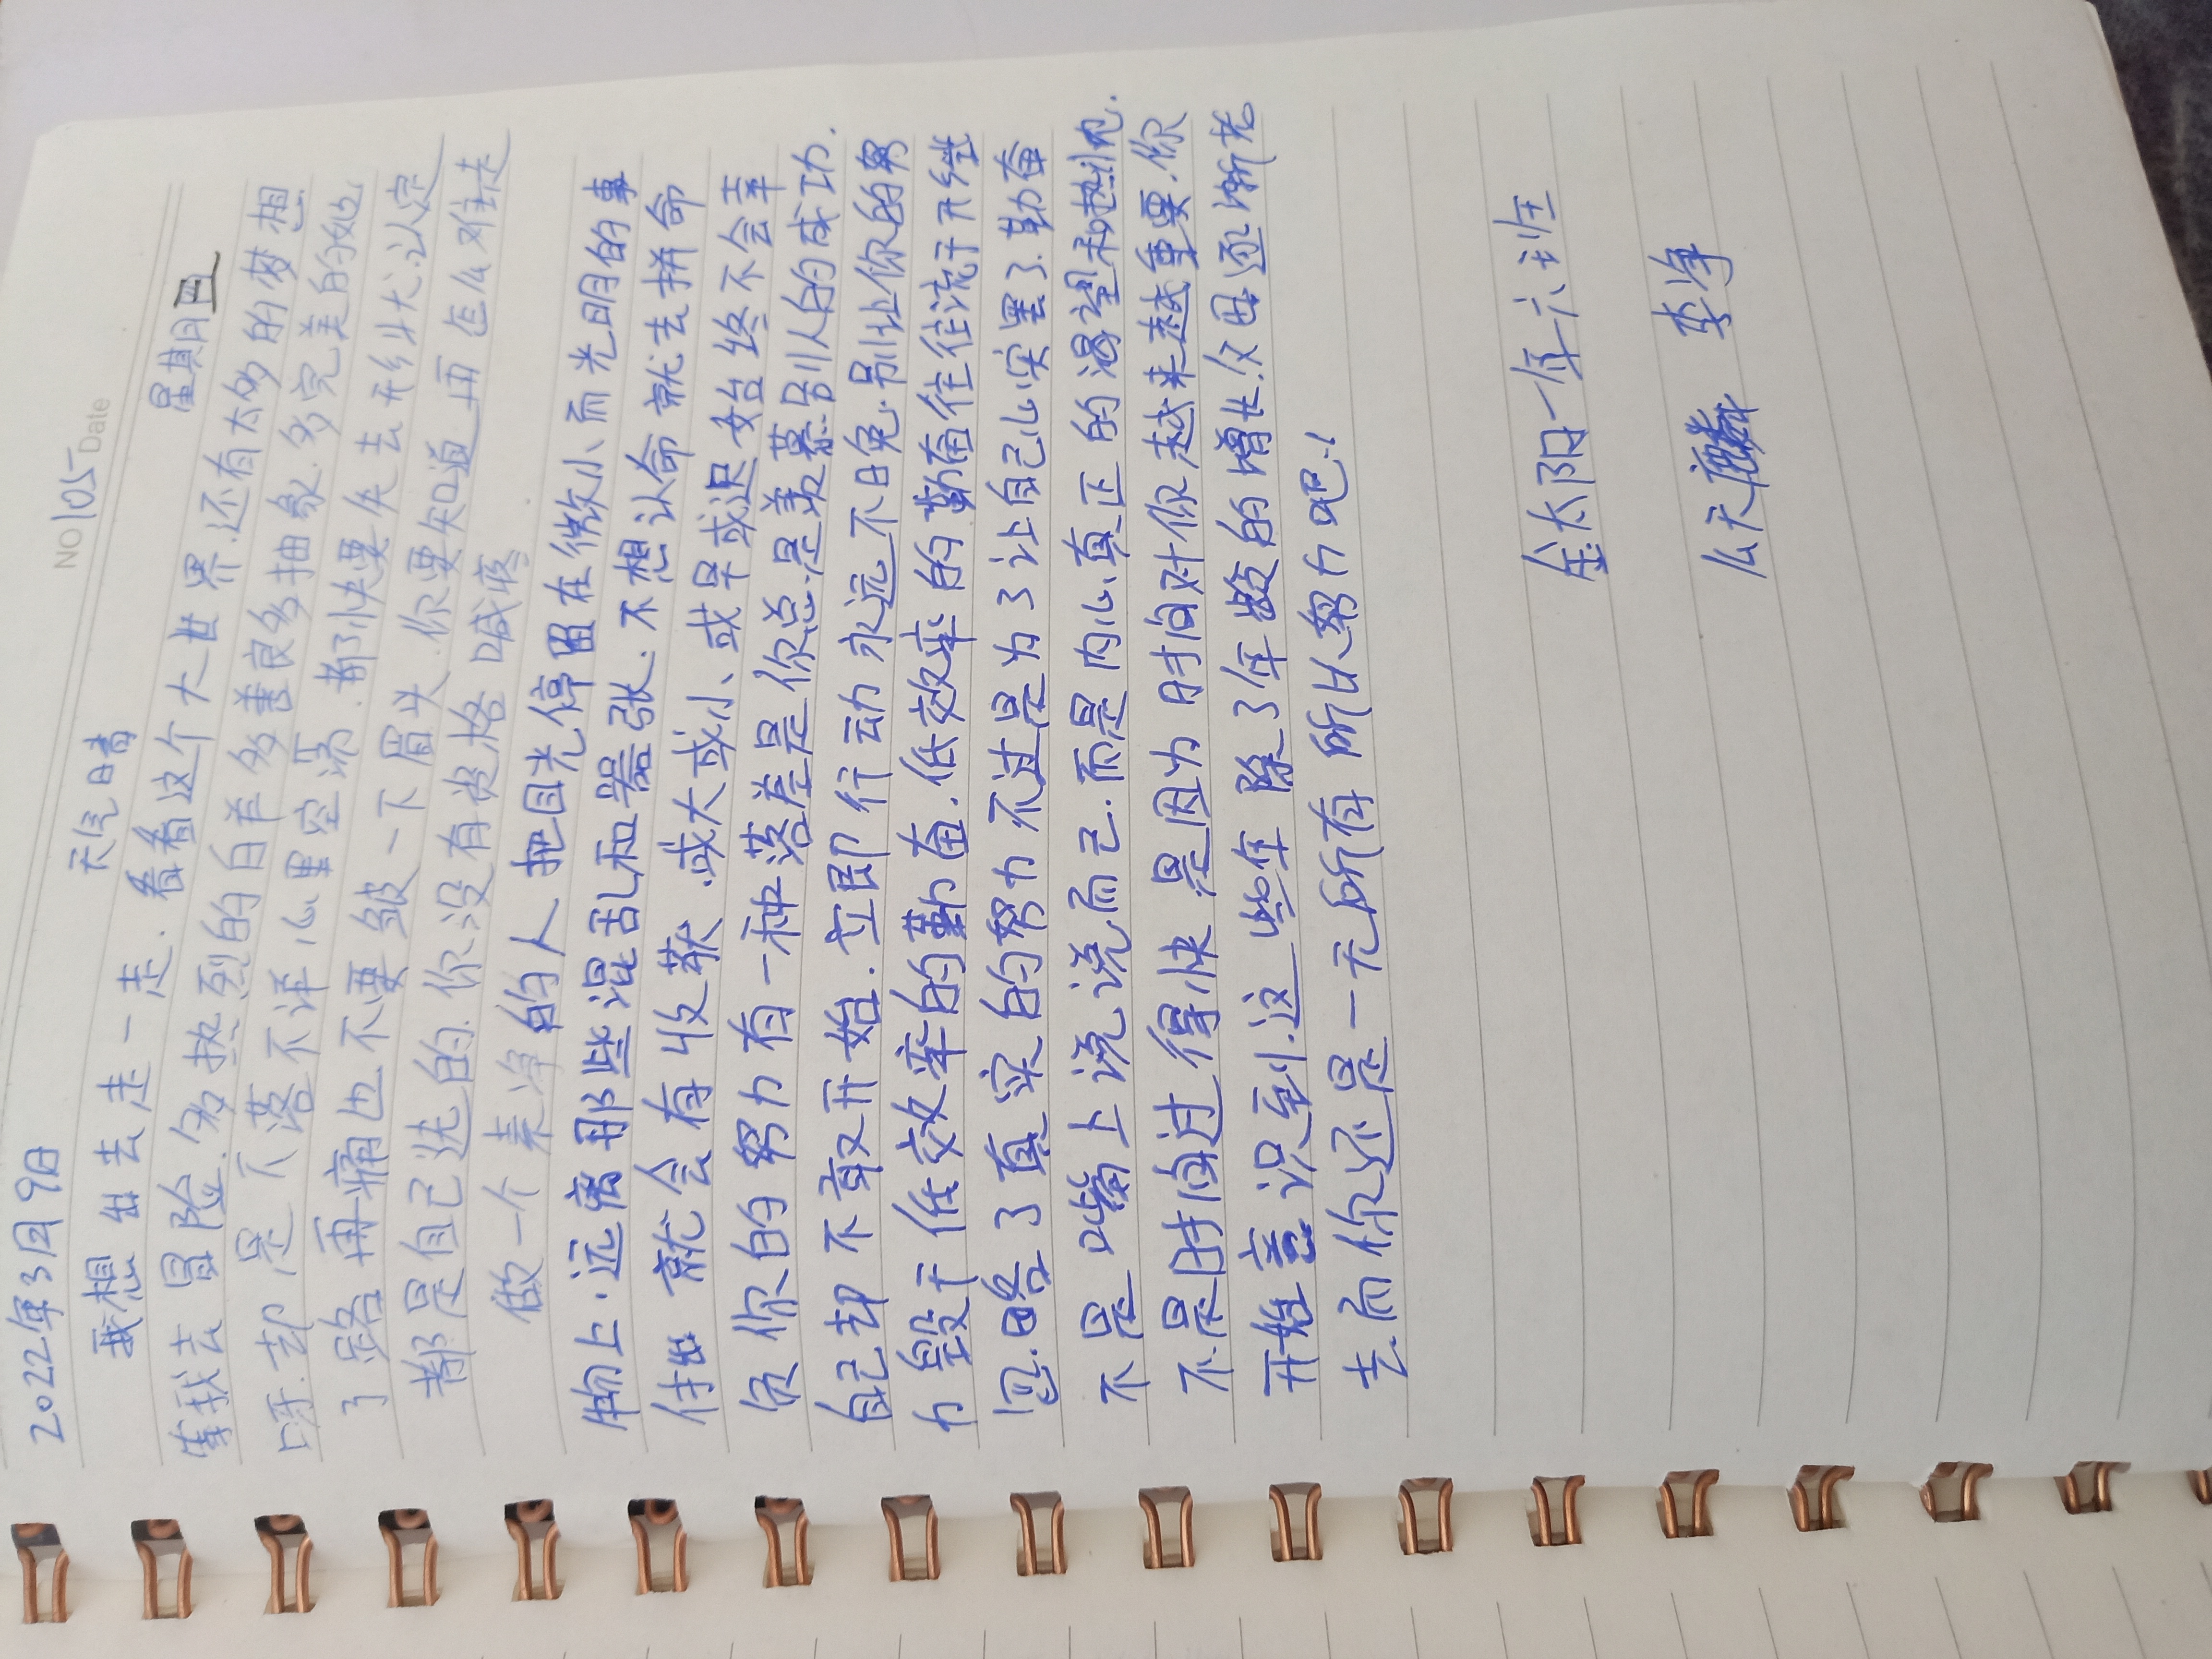 NO 105 Date
2022年3月9日 天气晴 星期四
我想出去走一走.看看这个大世界.还有太多的梦想
等我去冒险.多热烈的白羊多善良多抽象.多完美的她
呀.却是下落不详心里空荡.都快要失去形状.认定
了路再痛也不要皱一下眉头.你要知道再怎么难走
都是自己选的.你没有资格喊疼
做一个素净的人把目光停留在微小而光明的事
物上.远离那些混乱和嚣张.不想认命就去拼命
付出就会有收获.或大或小、或早或迟始终不会辜
负你的努力有一种落差是你总是羡慕别人的成功.
自己却不敢开始.立即行动永远不日免.别让你的努
力毁于低效率的勤奋.低效率的勤奋往往流于形式
忽略了真实的努力不过是为了让自己心安罢了.勤奋
不是嘴上说说而已.而是内心真正的渴望和热忱.
不是时间过得快是因为时间对你越来越重要.你
开始意识到.这些年除了年龄的增长.父母逐渐老
去.而你还是一无所有所以努力吧!
金太阳一年六班
么天 李净